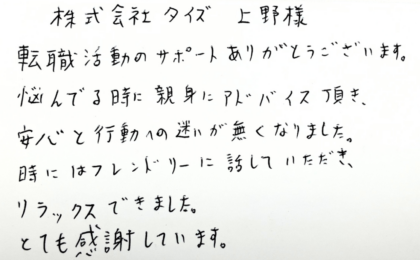 株式会社タイズ 上野様
転職活動のサポートありがとうございます。
悩んでる時に親身にアドバイス頂き、
安心と行動への迷いが無くなりました。
時にはフレンドリーに話していただき、
リラックスできました。
とても感謝しています。